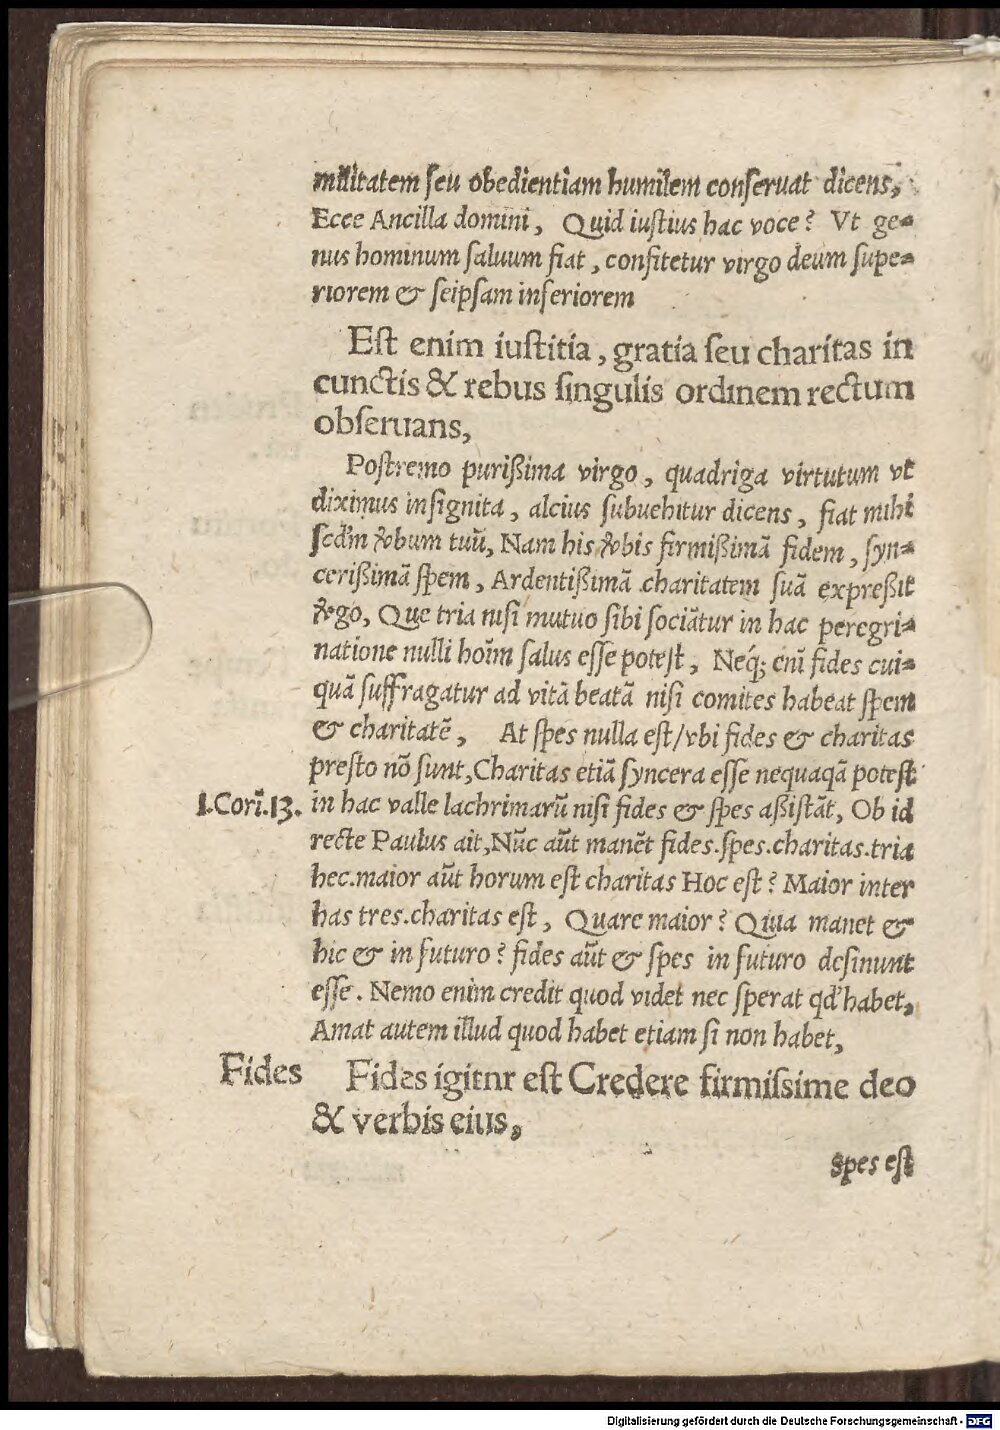 militatem ſeu obedientiam humilem conſeruat dicens,
Ecce Ancilla domini, Quid iuſtius hac voce? Vt ge-
nus hominum ſaluum fiat, confitetur virgo deum ſupe-
riorem & ſeipſam inferiorem
Eſt enim iuſtitia, gratia ſeu charitas in
cunctis & rebus ſingulis ordinem rectum
obſeruans,
Poſtremo purißima virgo, quadriga virtutum vt
diximus inſignita, alcius ſubuehitur dicens, fiat mihi
ſcd'm v̉bum tuū, Nam his v̉bis firmißimā fidem, ſyn-
cerißimā ſpem, Ardentißimā charitatem ſuā expreßit
v̉go, Que tria niſi mutuo ſibi ſociātur in hac peregri-
natione nulli hoīm ſalus eſſe poteſt, Neq́; enī fides cui-
quā ſuffragatur ad vitā beatā niſi comites habeat ſpem
& charitatē, At ſpes nulla eſt/vbi fides & charitas
preſto nō ſunt, Charitas etiā ſyncera eſſe nequaqā poteſt
I.Corī.13. in hac valle lachrimarū niſi fides & ſpes aßiſtāt, Ob id
recte Paulus ait, Nūc aūt manēt fides.ſpes.charitas.tria
hec.maior aūt horum eſt charitas Hoc eſt? Maior inter
has tres.charitas eſt, Quare maior? Quia manet &
hic & in futuro? fides aūt & ſpes in futuro deſinunt
eſſe. Nemo enim credit quod videt nec ſperat qd' habet,
Amat autem illud quod habet etiam ſi non habet,
Fides Fides igitnr eſt Credere firmiſsime deo
& verbis eius,
spes eſt
Digitalisierung gefördert durch die Deutsche Forschungsgemeinschaft - DFG